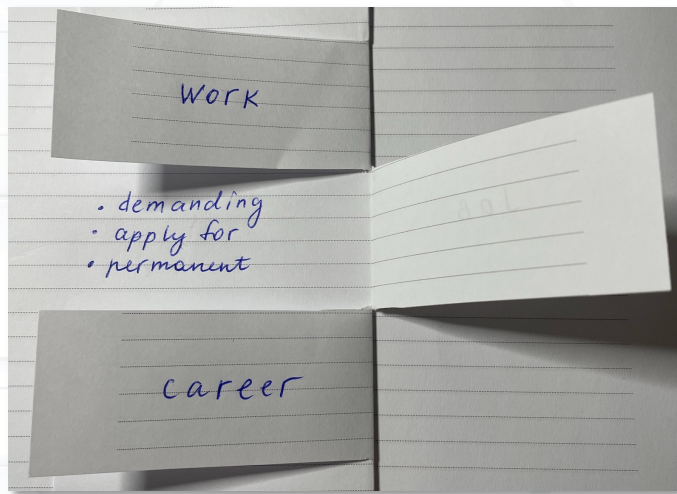 work
• demanding
• apply for
• permanent
career